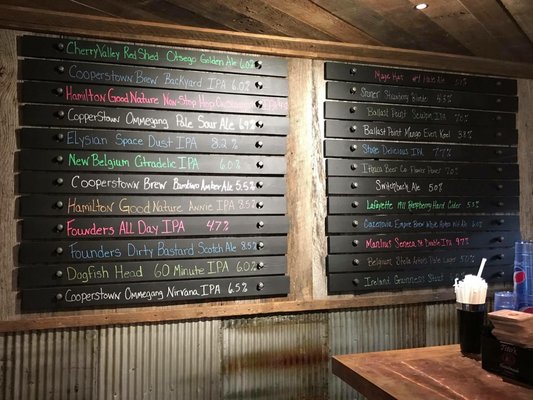 CherryValley Red Shed Otsego Golden Ale 6.0%
Cooperstown Brew Backyard IPA 6.0%
Hamilton Good Nature Non-Stop Hop
Cooperstown Ommegang Pale Sour Ale 6.9%
Elysian Space Dust IPA 8.2%
New Belgium Citradelic IPA 6.0%
Cooperstown Brew Bambino Amber Ale 5.5%
Hamilton Good Nature Annie IPA 6.8%
Founders All Day IPA 4.7%
Founders Dirty Bastard Scotch Ale 8.5%
Dogfish Head 60 Minute IPA 6.0%
Cooperstown Ommegang Nirvana IPA 6.5%
Magic Hat #9
Strawberry Blonde 4.3%
Ballast Point Sculpin IPA 7.0%
Ballast Point Mango Even Keel 3.8%
Delicious IPA 7.7%
Ithaca Beer Co Flower Power
Switchback Ale 5.0%
Lafayette Raspberry Hard Cider 5.5%
Cazenovia Empire Brew White Aphro
Manlius Seneca Double IPA 9.7%
Belgium Stella Artois 5.0%
Ireland Guinness Stout